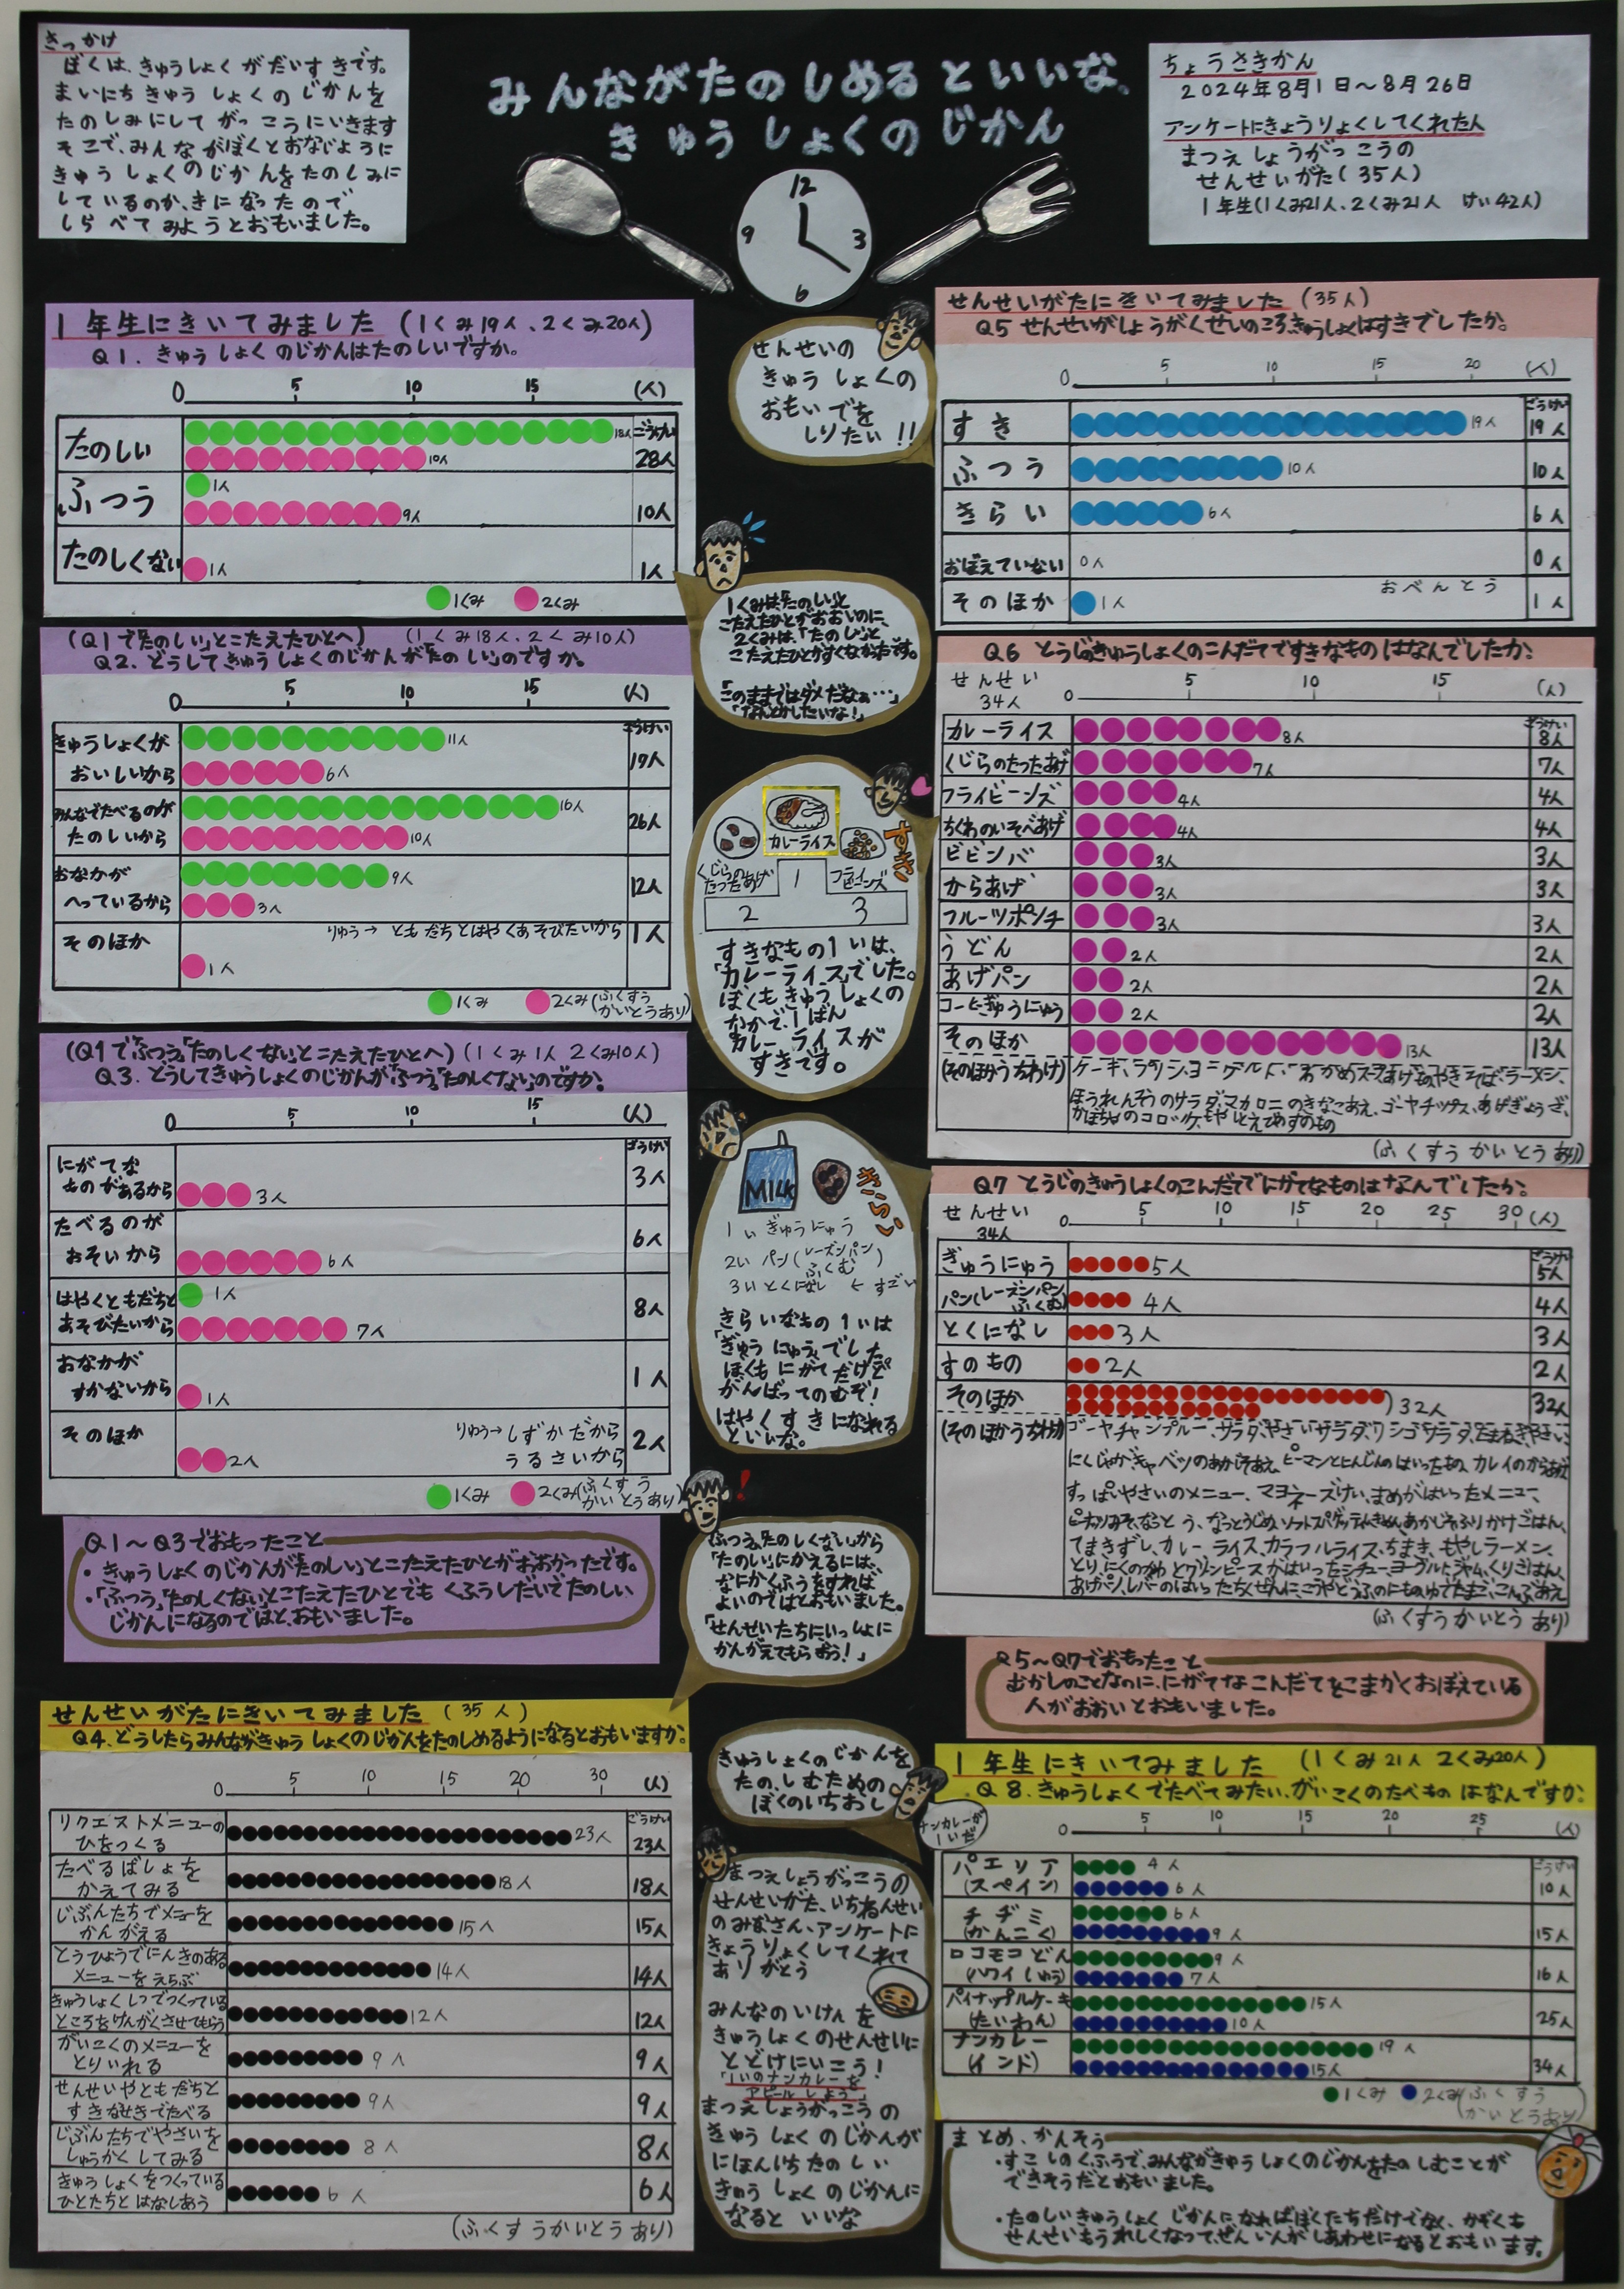 みんながたのしめるといいな、
きゅうしょくのじかん
きっかけ
ぼくは、きゅうしょくがだいすきです。
まいにちきゅうしょくのじかんを
たのしみにしてがっこうにいきます
そこで、みんながぼくとおなじように
きゅうしょくのじかんをたのしみに
しているのか、きになったので
しらべてみようとおもいました。
ちょうさきかん
2024年8月1日～8月26日
アンケートにきょうりょくしてくれた人
まつえしょうがっこうの
せんせいがた(35人)
1年生(1くみ21人、2くみ21人 けい42人)
12
3
6
9
1年生にきいてみました (1くみ19人、2くみ20人)
Q1. きゅうしょくのじかんはたのしいですか。
0 5 10 15 (人)
ごうけい
たのしい 18人
10人 28人
ふつう 1人
9人 10人
たのしくない 1人 1人
1くみ 2くみ
(Q1で「たのしい」とこたえたひとへ) (1くみ18人、2くみ10人)
Q2. どうしてきゅうしょくのじかんが「たのしい」のですか。
0 5 10 15 (人)
ごうけい
きゅうしょくが 11人
おいしいから 6人 17人
みんなでたべるのが 16人
たのしいから 10人 26人
おなかが 9人
へっているから 3人 12人
そのほか りゆう→ ともだちとはやくあそびたいから 1人
1人
1くみ 2くみ(ふくすう
かいとうあり)
(Q1で「ふつう」「たのしくない」とこたえたひとへ) (1くみ1人 2くみ10人)
Q3. どうしてきゅうしょくのじかんが「ふつう」「たのしくない」のですか。
0 5 10 15 (人)
ごうけい
にがてな
ものがあるから 3人 3人
たべるのが
おそいから 6人 6人
はやくともだちと 1人
あそびたいから 7人 8人
おなかが
すかないから 1人 1人
そのほか りゆう→しずかだから
うるさいから
2人 2人
1くみ 2くみ(ふくすう
かいとうあり)
Q1～Q3でおもったこと
・きゅうしょくのじかんが「たのしい」とこたえたひとがおおかったです。
・「ふつう」「たのしくない」とこたえたひとでも くふうしだいでたのしい
じかんになるのではと、おもいました。
せんせいがたにきいてみました (35人)
Q4. どうしたらみんながきゅうしょくのじかんをたのしめるようになるとおもいますか。
0 5 10 15 20 30 (人)
ごうけい
リクエストメニューの
ひをつくる 23人 23人
たべるばしょを
かえてみる 18人 18人
じぶんたちでメニューを
かんがえる 15人 15人
とうひょうでにんきのある
メニューをえらぶ 14人 14人
きゅうしょくしつでつくっている
ところをけんがくさせてもらう 12人 12人
がいこくのメニューを
とりいれる 9人 9人
せんせいやともだちと
すきなせきでたべる 9人 9人
じぶんたちでやさいを
しゅうかくしてみる 8人 8人
きゅうしょくをつくっている
ひとたちとはなしあう 6人 6人
(ふくすうかいとうあり)
せんせいの
きゅうしょくの
おもいでを
しりたい!!
1くみは、「たのしい」と
こたえたひとがおおいのに、
2くみは、「たのしい」と
こたえたひとがすくなかったです。
「このままではダメだなぁ…」
「なんとかしたいな!」
すき
カレーライス
くじらの
たつたあげ
フライ
ビーンズ
1
2
3
すきなもの1いは、
「カレーライス」でした。
ぼくもきゅうしょくの
なかで、1ばん
カレーライスが
すきです。
MILK
きらい
1い ぎゅうにゅう
2い パン(レーズンパン
ふくむ)
3い とくになし ← すごい
きらいなもの1いは
「ぎゅうにゅう」でした
ぼくもにがてだけど
がんばってのむぞ!
はやくすきになれる
といいな。
!
「ふつう」「たのしくない」から
「たのしい」にかえるには、
なにかくふうをすれば
よいのではとおもいました。
「せんせいたちにいっしょに
かんがえてもらおう!」
きゅうしょくのじかんを
たのしむための
ぼくのいちおし
ナンカレーが
1いだ
まつえしょうがっこうの
せんせいがた、いちねんせい
のみなさん、アンケートに
きょうりょくしてくれて
ありがとう
みんなのいけんを
きゅうしょくのせんせいに
とどけにいこう!
「1いのナンカレーを
アピールしよう」
まつえしょうがっこうの
きゅうしょくのじかんが
にほんいちたのしい
きゅうしょくのじかんに
なるといいな
せんせいがたにきいてみました (35人)
Q5 せんせいがしょうがくせいのころきゅうしょくはすきでしたか。
0 5 10 15 20 (人)
ごうけい
すき 19人 19人
ふつう 10人 10人
きらい 6人 6人
おぼえていない 0人 0人
おべんとう
そのほか 1人 1人
Q6 とうじのきゅうしょくのこんだてですきなものはなんでしたか。
せんせい
34人
0 5 10 15 (人)
ごうけい
カレーライス 8人 8人
くじらのたったあげ 7人 7人
フライビーンズ 4人 4人
ちくわのいそべあげ 4人 4人
ビビンバ 3人 3人
からあげ 3人 3人
フルーツポンチ 3人 3人
うどん 2人 2人
あげパン 2人 2人
コーヒーぎゅうにゅう 2人 2人
そのほか 13人 13人
(そのほかうちわけ) ケーキ、ラッシー、ヨーグルト、わかめスープ、あげもの、やきそば、ラーメン、
ほうれんそうのサラダ、マカロニのきなこあえ、ゴーヤチップス、あげぎょうざ、
かぼちゃのコロッケ、もやしとえでめすのもの
(ふくすうかいとうあり)
Q7 とうじのきゅうしょくのこんだてでにがてなものはなんでしたか。
せんせい
34人
0 5 10 15 20 25 30 (人)
ごうけい
ぎゅうにゅう 5人 5人
パン(レーズンパン
ふくむ) 4人 4人
とくになし 3人 3人
すのもの 2人 2人
そのほか 32人 32人
(そのほかうちわけ) ゴーヤチャンプルー、サラダ、やさいサラダ、リンゴサラダ、たまねぎ、やさい、
にくじゃが、キャベツのあかじそあえ、ピーマンとにんじんのはいったもの、カレイのからあげ
すっぱいやさいのメニュー、マヨネーズけい、まめがはいったメニュー、
ピーナッツみそ、なっとう、なっとうじめ、ソフトスパゲッティ、きしめん、あかじそふりかけごはん、
てまきずし、カレーライス、カラフルライス、ちまき、もやしラーメン、
とりにくのかわ とグリンピースがはいったシチュー、ヨーグルト、ジャム、くりごはん、
あげパン、レバーのはいったちくぜんに、こうやどうふのにもの、ゆでたまご、こんぶあえ
(ふくすうかいとうあり)
Q5～Q7でおもったこと
むかしのことなのに、にがてなこんだてをこまかくおぼえている
人がおおいとおもいました。
1年生にきいてみました (1くみ21人 2くみ20人)
Q8. きゅうしょくでたべてみたい、がいこくのたべものはなんですか。
0 5 10 15 20 25 (人)
ごうけい
パエリア 4人
(スペイン) 6人 10人
チヂミ 6人
(かんこく) 9人 15人
ロコモコどん 9人
(ハワイしゅう) 7人 16人
パイナップルケーキ 15人
(たいわん) 10人 25人
ナンカレー 19人
(インド) 15人 34人
1くみ 2くみ(ふくすう
かいとうあり)
まとめ、かんそう
・すこしのくふうで、みんながきゅうしょくのじかんをたのしむことが
できそうだとおもいました。
・たのしいきゅうしょくじかんになればぼくたちだけでなく、かぞくも
せんせいもうれしくなって、ぜんいんがしあわせになるとおもいます。